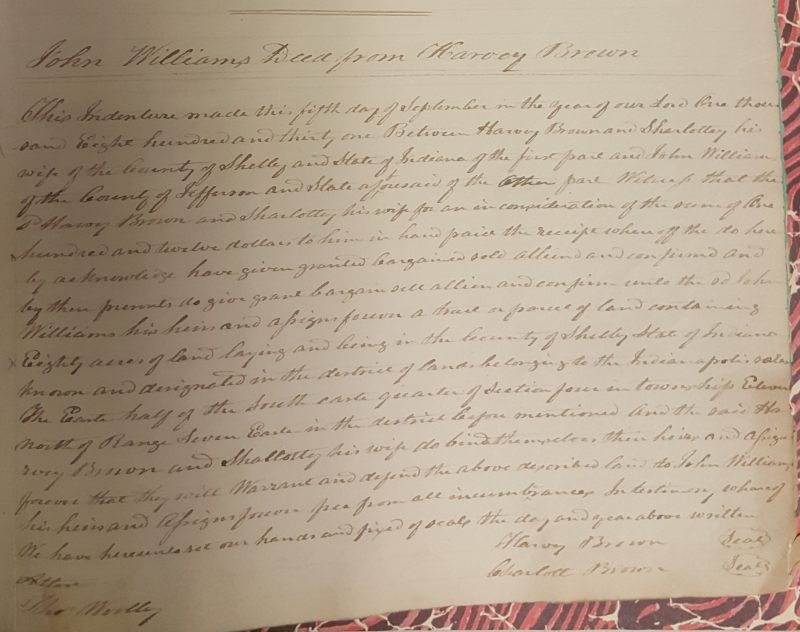 John Williams Deed from Harvey Brown
This Indenture made this fifth day of September in the year of our Lord One thou
sand Eight hundred and thirty one Between Harvey Brown and Sharlottey his
wife of the County of Shelby and State of Indiana of the first part and John Williams
of the County of Jefferson and State aforesaid of the Other part Witness that the
sd Harvey Brown and Sharlottey his wife for an in consideration of the sum of One
hundred and twelve dollars to him in hand paid the receipt where off the do here
by acknowledge have given granted bargained sold aliend and confirmd and
by them presents do give grant bargain sell allien and confirm unto the sd John
Williams his heirs and assigns forever a tract or parcel of land containing
Eighty acres of land laying and being in the County of Shelby State of Indiana
known and designated in the district of lands belonging to the Indianapolis
The Easte half of the South easte quarter of Section four in township Eleven
north of Range Seven Easte in the district before mentioned And the said Ha
rvey Brown and Shallottey his wife do bind themselves their heirs and assigns
forever that they will Warrant and defend the above described land to John Williams
his heirs and assigns forever free from all incumbrances In testimony whereof
We have hereunto set our hands and fixed of seals the day and year above written
Harvey Brown Seal
Charlott Brown Seal
Attest
Thos Woolley